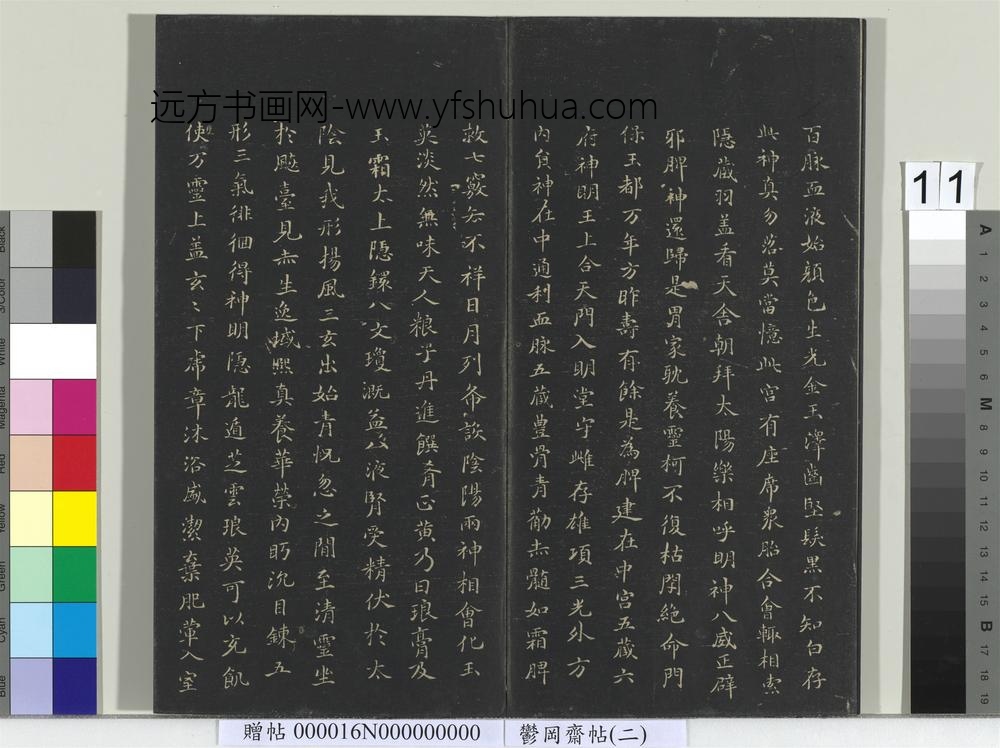 远方书画网-www.yfshuhua.com
百脉血液始顏色生光金玉澤齒堅髮黑不知白存
此神真勿落莫當憶此宮有座席衆胎合會轉相索
隱藏羽盖看天舍朝拜太陽樂相呼明神八威正辟
邪脾神還歸是胃家耽養靈柯不復枯閇絕命門
保玉都万年方昨壽有餘是為脾建在中宮五藏六
府神明王上合天門入明堂守雌存雄項三光外方
內負神在中通利血脉五藏豊骨青勸赤髓如霜脾
救七竅去不祥日月列布設陰陽兩神相會化玉
英淡然無味天人粮子丹進饌肴正黃乃曰琅膏及
玉霜太上隱鐶八文瓊溉益八液腎受精伏於太
陰見我形揚風三玄出始青怳忽之閒至清靈坐
於飈臺見赤生逸域熙真養華榮內盻沉目鍊五
形三氣徘徊得神明隱龍遁芝雲琅英可以充飢
使万靈上盖玄〻下虎章沐浴盛潔棄肥薰入室
贈帖 000016N000000000
鬱岡齋帖(二)
11
Black
3/Color
White
Magenta
Red
Yellow
Green
Cyan
Blue
A
1
2
3
4
5
6
M
8
9
10
11
12
13
14
15
B
17
18
19